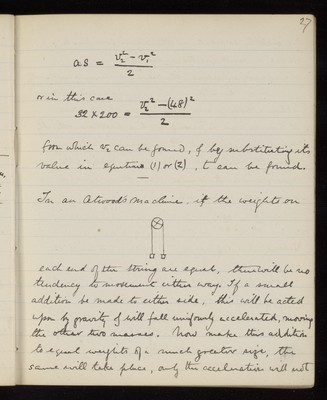 27
as = (v₂² – v₁²) / 2
or in this case
32 × 200 = (v₂² – (48)²) / 2
from which v₂ can be found, & by substituting its
value in equation (1) or (2), t can be found.
In an Atwood's machine, if the weights on
each end of the string are equal, there will be no
tendency to movement either way. If a small
addition be made to either side, this will be acted
upon by gravity & will fall uniformly accelerated, moving
the other two masses. Now make this addition
to equal weights of a much greater size, the
same will take place, only the acceleration will not